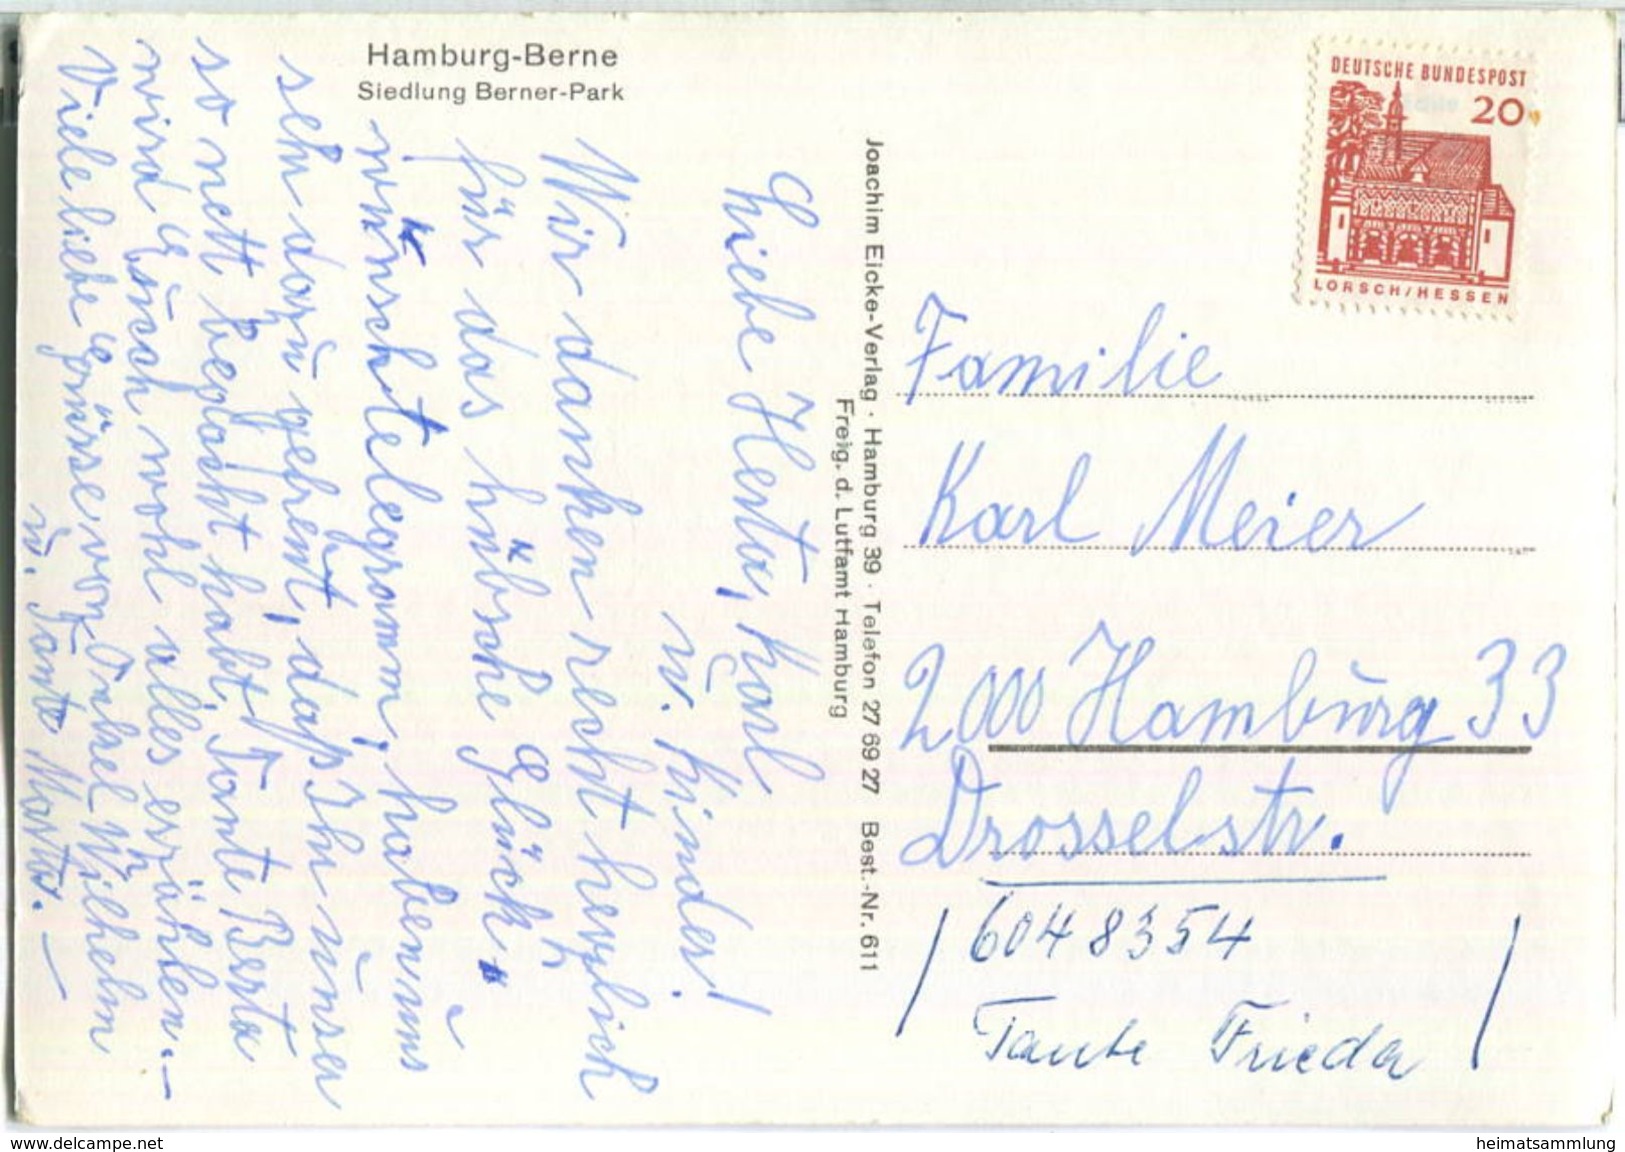 Hamburg-Berne
Siedlung Berner-Park
Liebe Herta, Karl
u. Kinder!
Wir danken recht herzlich
für das hübsche Glück-
wunschtelegramm, haben uns
sehr dazu gefreut, daß Ihr unser
so nett bedacht habt. Tante Berta
wird Euch wohl alles erzählen.-
Viele liebe Grüsse von Onkel Wilhelm
u. Tante Martha.
Joachim Eicke-Verlag · Hamburg 39 · Telefon 27 69 27 Best.-Nr. 611
Freig. d. Luftamt Hamburg
DEUTSCHE BUNDESPOST
20
LORSCH/HESSEN
Familie
Karl Meier
2000 Hamburg 33
Drosselstr.
6048354
Tante Frieda
www.delcampe.net
heimatsammlung